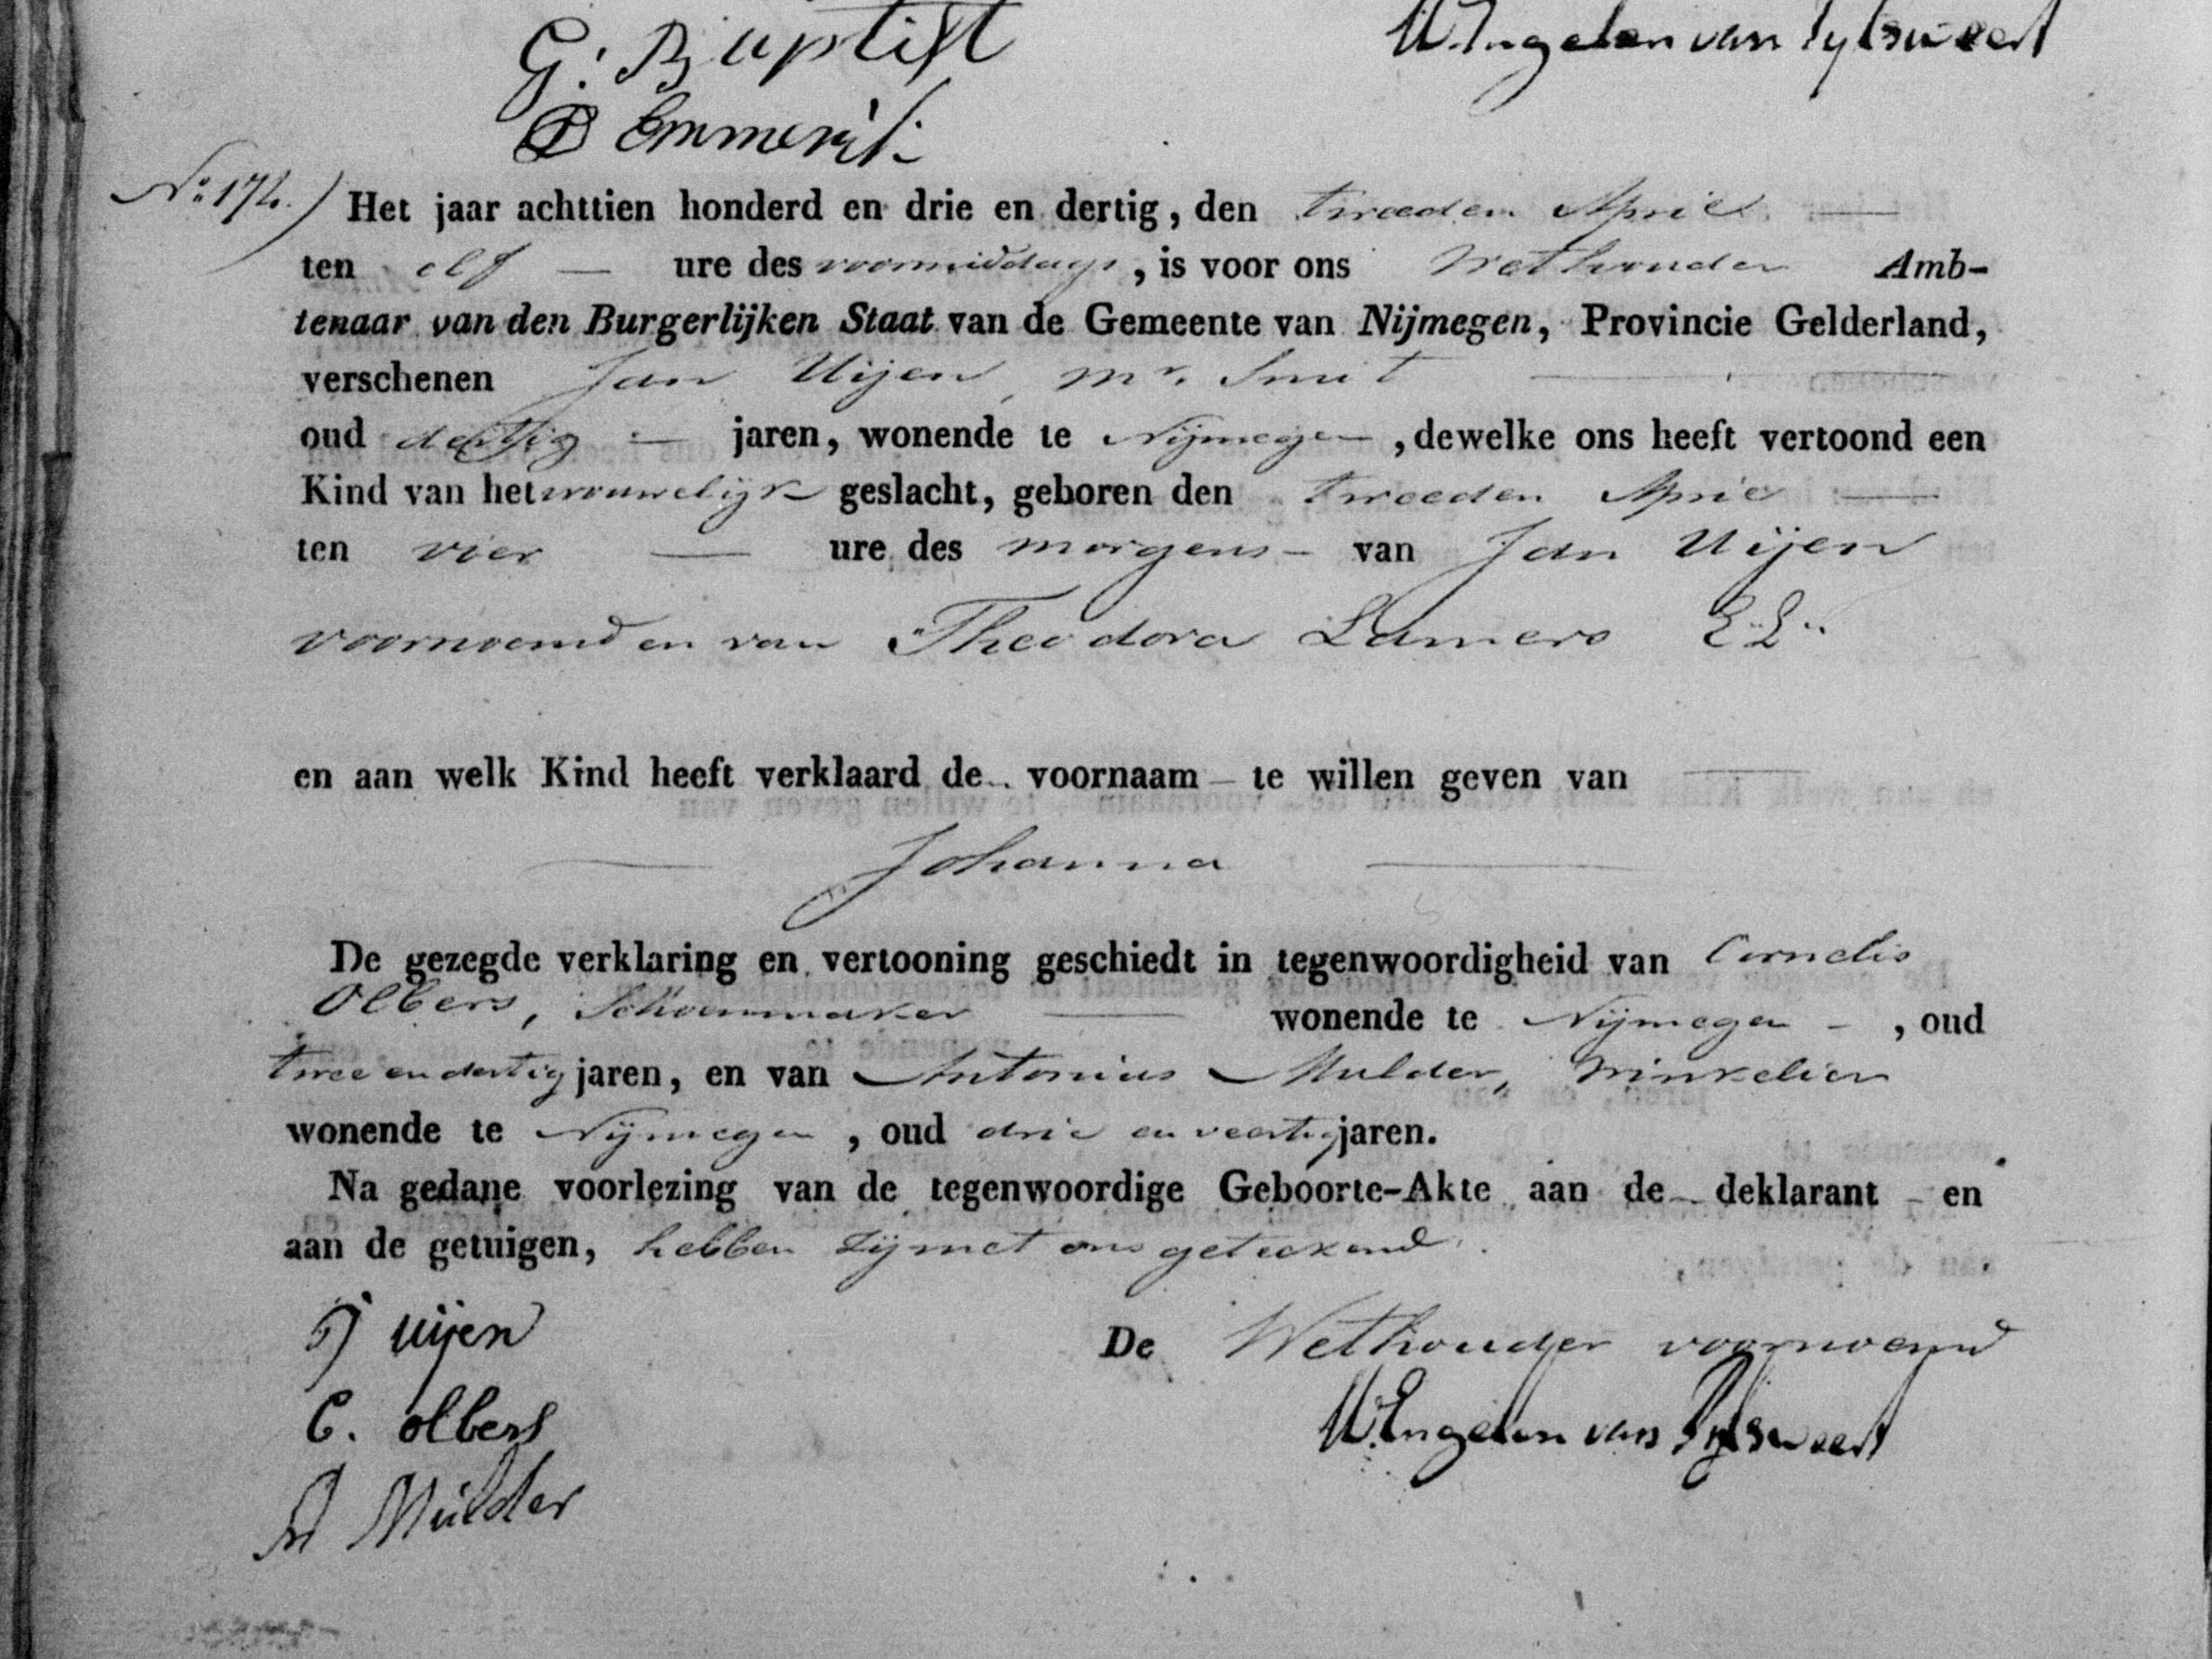 G: Baptist
W. Engelen van Pylsweert
D Emmerik
No. 174.) Het jaar achttien honderd en drie en dertig, den tweeden April
ten elf ure des voormiddags, is voor ons Wethouder Amb-
tenaar van den Burgerlijken Staat van de Gemeente van Nijmegen, Provincie Gelderland,
verschenen Jan Uijen, Mr. Smit
oud dertig jaren, wonende te Nijmegen, dewelke ons heeft vertoond een
Kind van het vrouwelijk geslacht, geboren den tweeden April
ten vier ure des morgens van Jan Uijen
voornoemd en van Theodora Lamers E.L.
en aan welk Kind heeft verklaard de voornaam te willen geven van
Johanna
De gezegde verklaring en vertooning geschiedt in tegenwoordigheid van Cornelis
Olbers, Schoenmaker wonende te Nijmegen, oud
twee en dertig jaren, en van Antonius Mulder, Winkelier
wonende te Nijmegen, oud drie en veertig jaren.
Na gedane voorlezing van de tegenwoordige Geboorte-Akte aan de deklarant en
aan de getuigen, hebben zij met ons geteekend.
J uijen
De Wethouder voornoemd
C. olbers
W. Engelen van Pylsweert
A Mulder